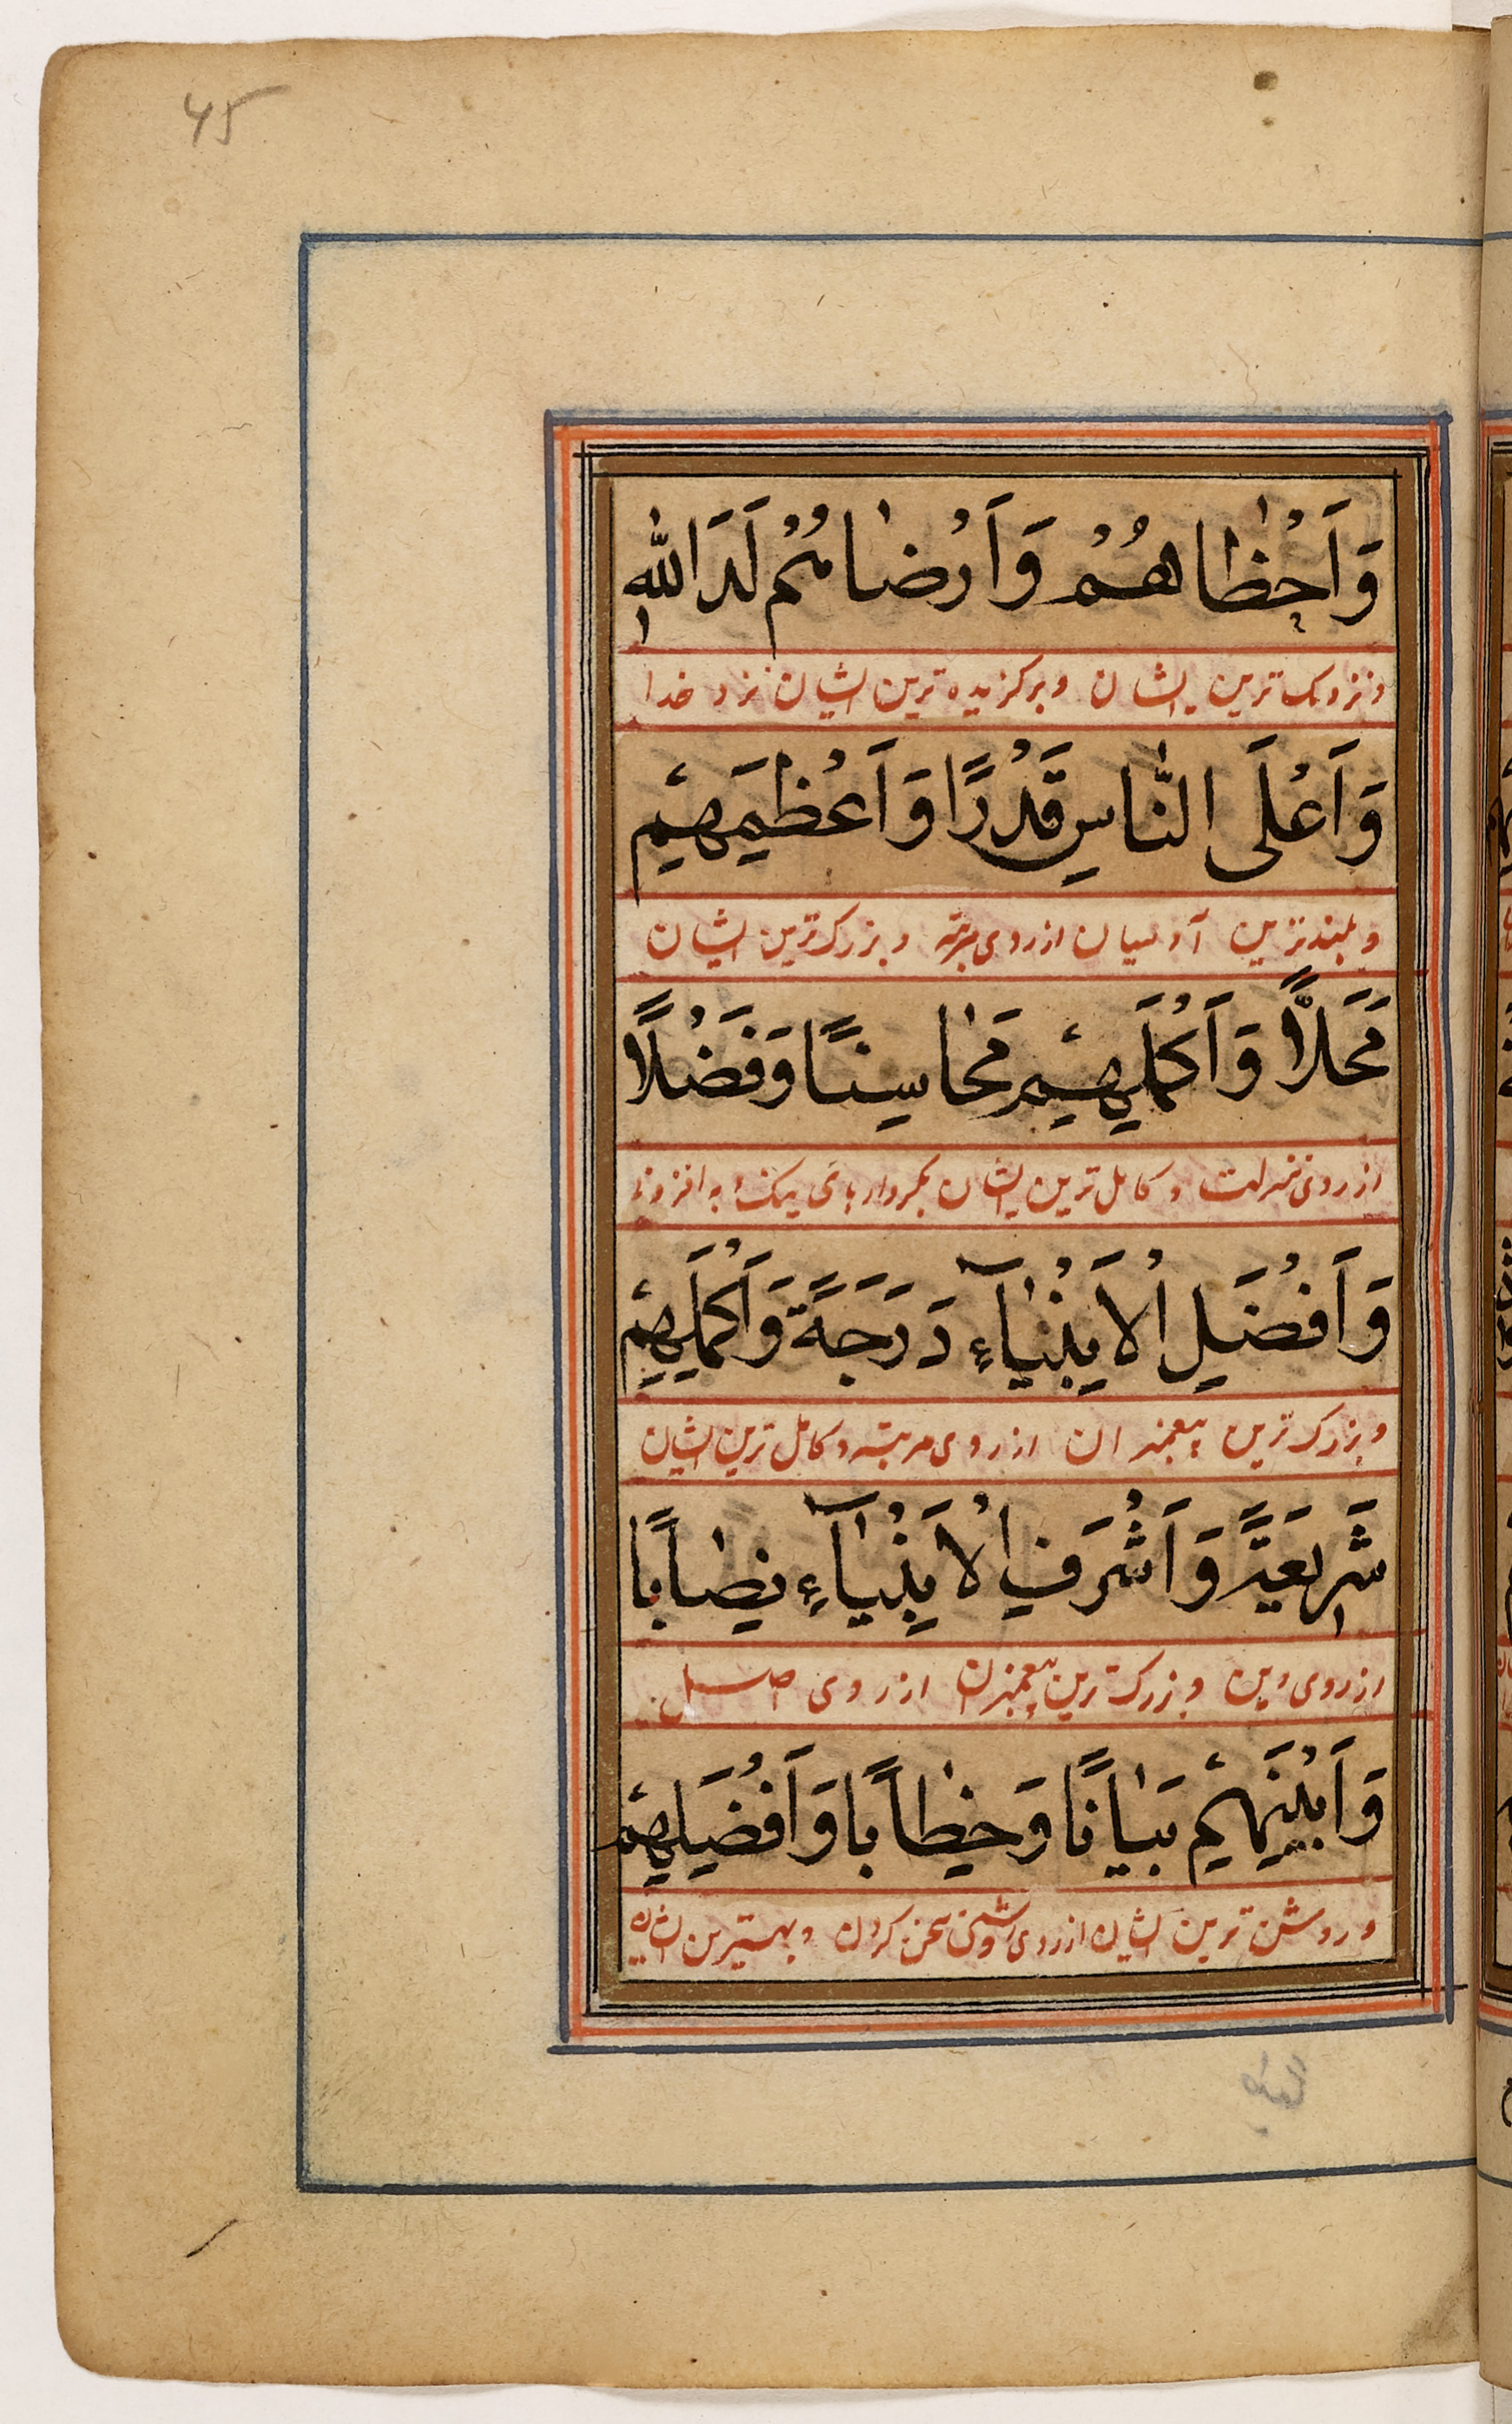 45
وَاَحْظَاهُمْ وَاَرْضَاهُمْ لَدَ اللّٰهِ
و نزدیک ترین ایشان و برکزیده ترین ایشان نزد خدا
وَاَعْلَى النَّاسِ قَدْرًا وَاَعْظَمِهِمْ
و بلندترین آدمیان از روی مرتبه و بزرک ترین ایشان
مَحَلًّا وَاَكْمَلِهِمْ مَحَاسِنًا وَفَضْلًا
از روی منزلت و کامل ترین ایشان بکردارهای نیک و به افزونی
وَاَفْضَلِ الْاَنْبِيَآءِ دَرَجَةً وَاَكْمَلِهِمْ
و بزرک ترین پیغمبران از روی مرتبه و کامل ترین ایشان
شَرِيعَةً وَاَشْرَفِ الْاَنْبِيَآءِ نِصَابًا
از روی دین و بزرک ترین پیغمبران از روی اصل
وَاَبْيَنِهِمْ بَيَانًا وَخِطَابًا وَاَفْضَلِهِمْ
و روشن ترین ایشان از روی روشنی سخن کردن و بهترین ایشان